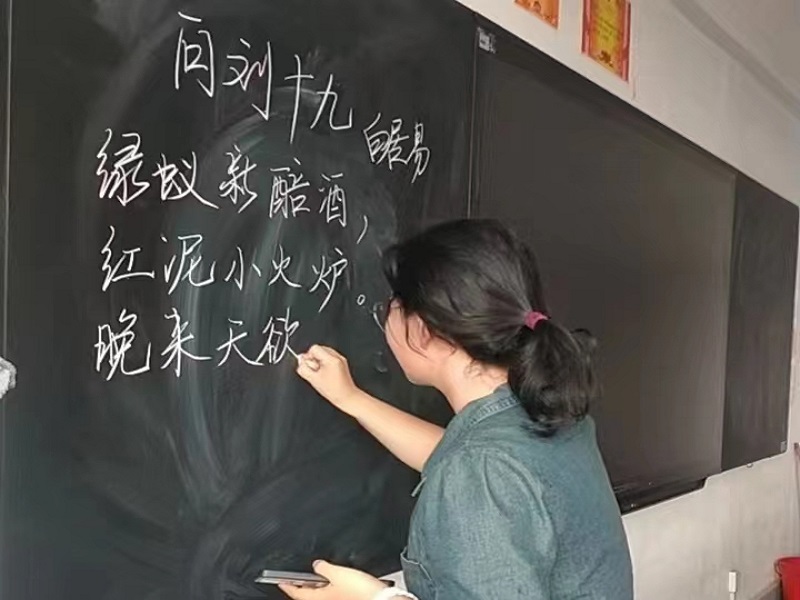 问刘十九
白居易
绿蚁新醅酒，
红泥小火炉。
晚来天欲